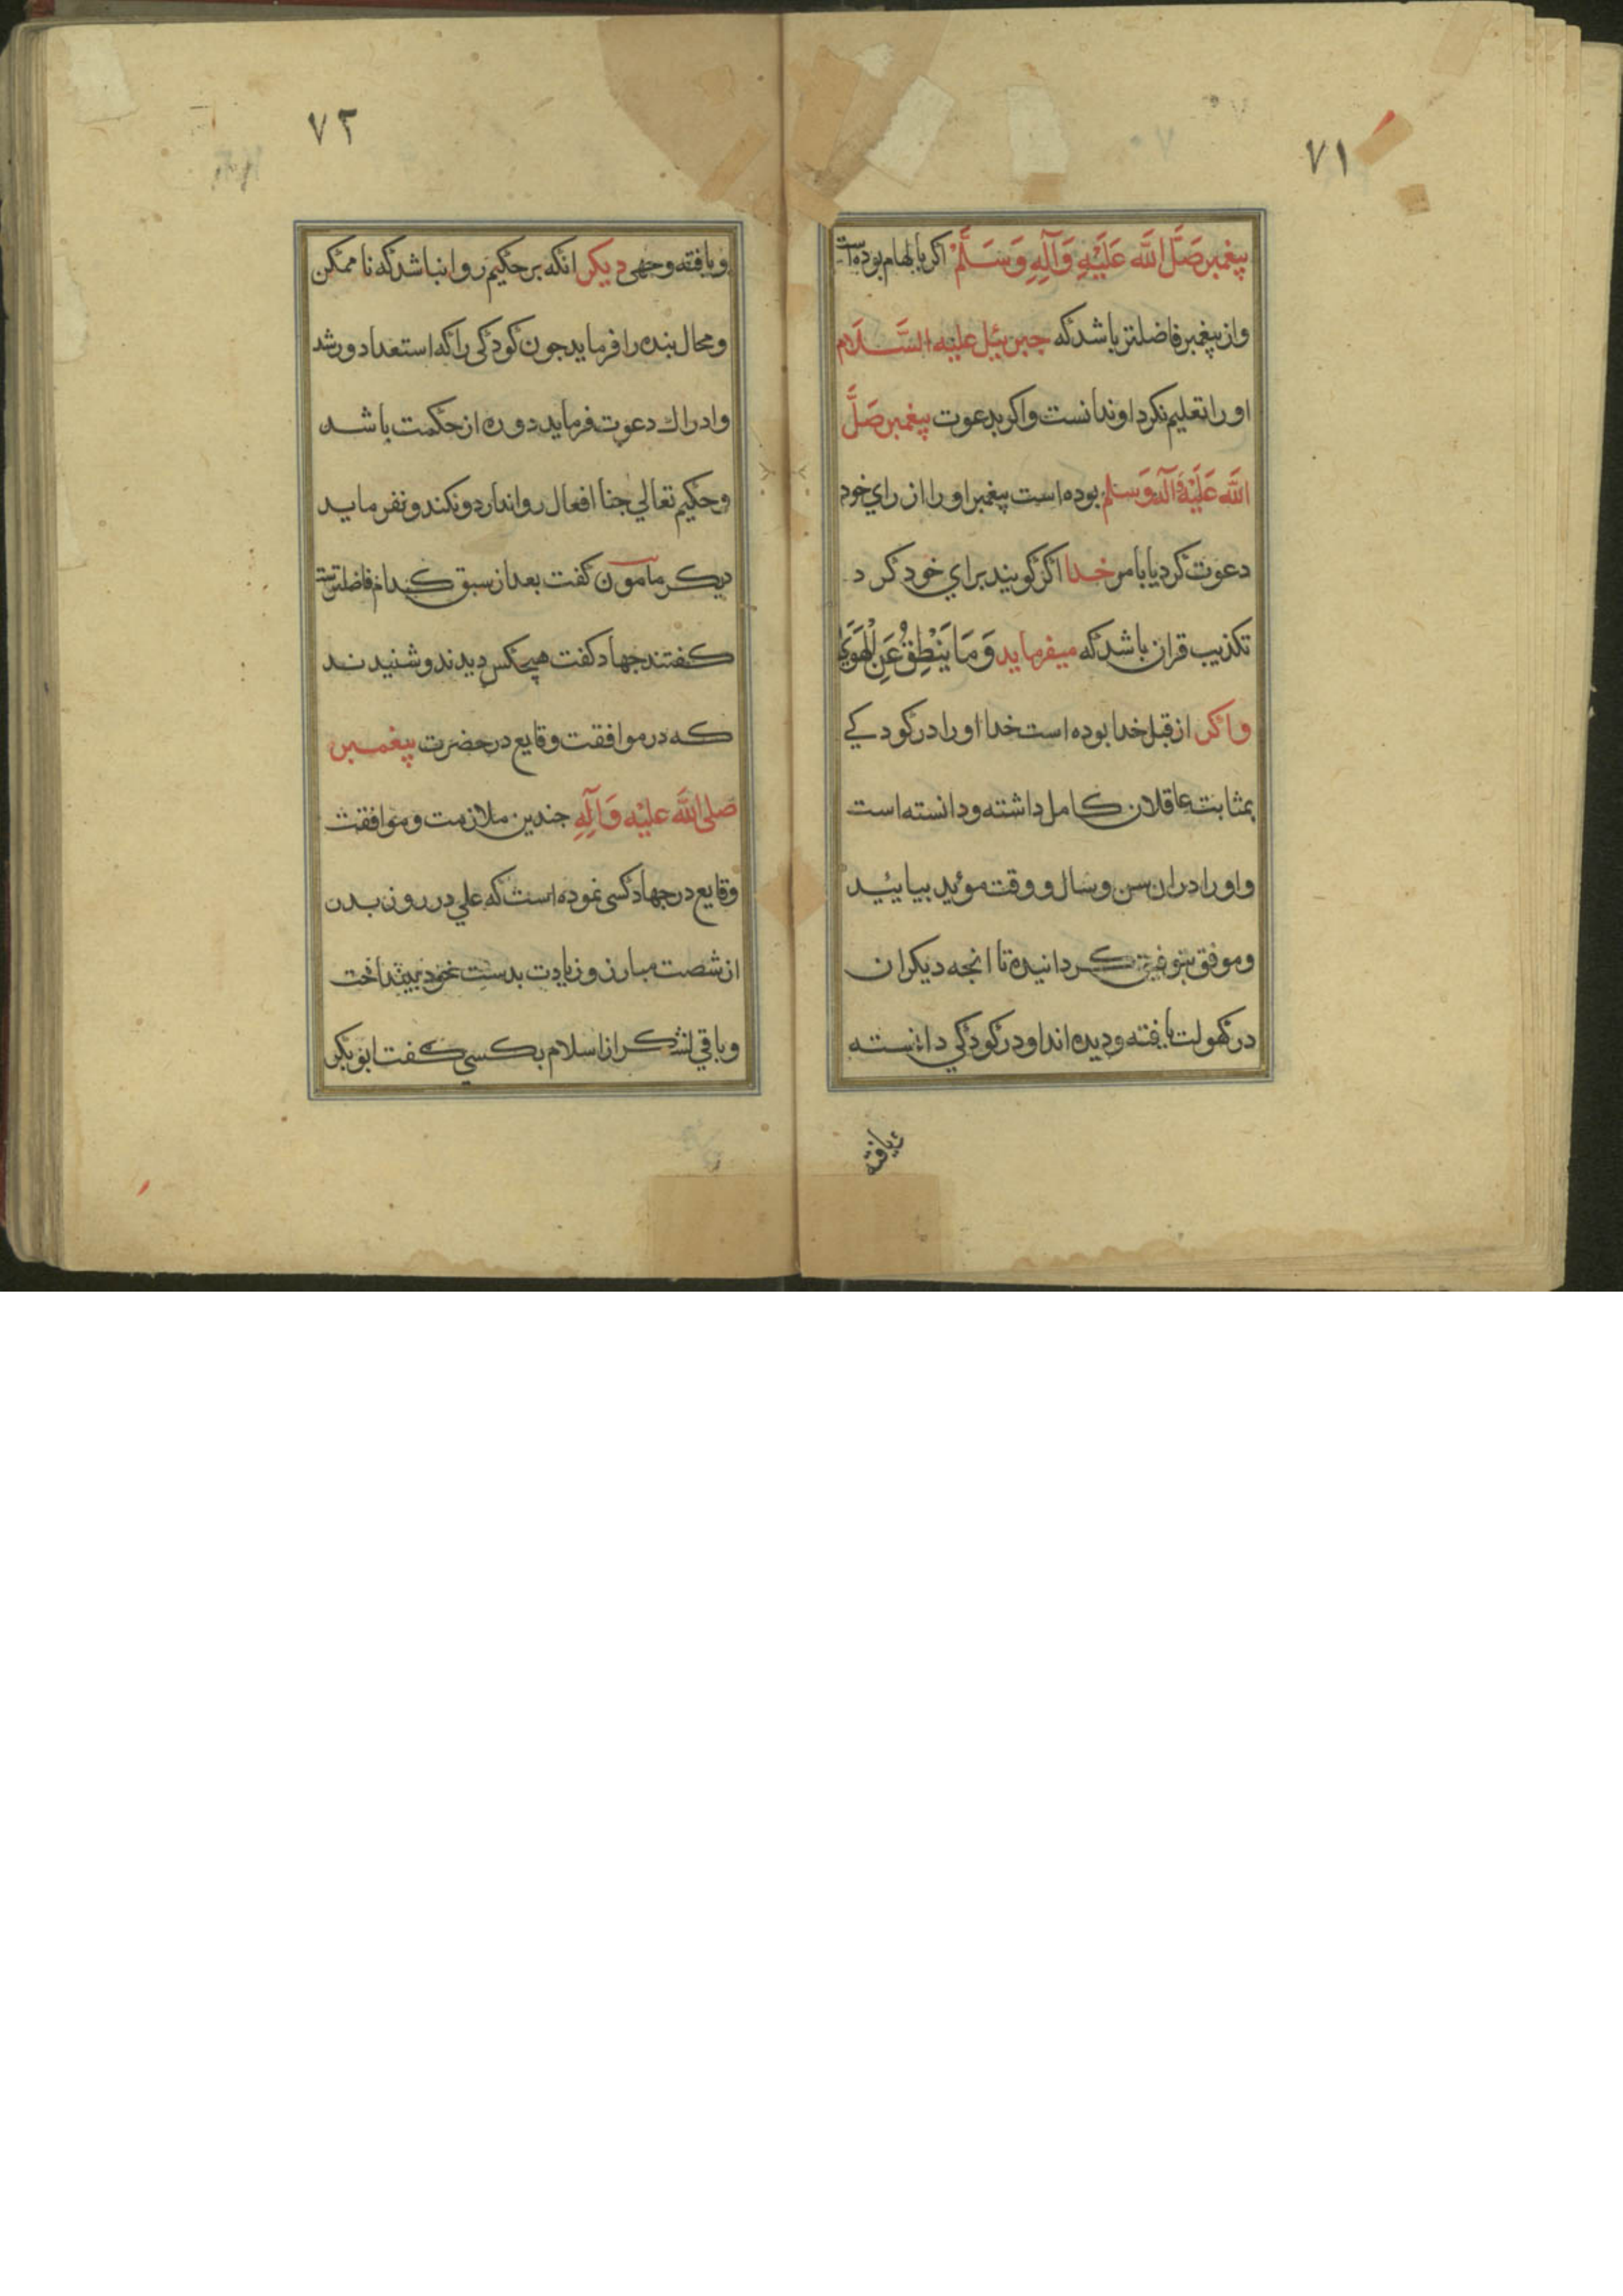 ۷۱
پیغمبر صَلَّ اللَّه عَلَيْهِ وَآلِهِ وَسَلَّمْ اکر بالهام بوده است
واز پیغمبر فاضلتر باشد که جبرئیل علیه السَّلام
او را تعلیم نکرد او ندانست واکر بدعوت پیغمبر صَلَّ
اللَّه عَلَيْهِ وَآلِهِ وَسَلم بوده است پیغمبر او را از راي خود
دعوت کرد یا بامر خدا اکر کویند براي خود کرد
تکذیب قران باشد که میفرماید وَمَا یَنْطِقُ عَنِ الْهَوَيٰ
واکر از قبل خدا بوده است خدا او را در کودکے
بمثابت عاقلان کامل داشته ودانسته است
واو را در ان سن وسال ووقت موئید بیایئید
وموفق بتوفیق کردانیده تا انجه دیکران
در کهولت یافته ودیده اند او در کودکي دانسته
ویافته
۷۲
ویافته وجهی دیکر انکه بر حکیم روا نباشد که نا ممکن
ومحال بنده را فرماید جون کودکی را که استعداد ورشد
وادراك دعوت فرماید دوره از حکمت باشد
وحکیم تعالي جنا افعال روا ندارد ونکند ونفرماید
دیکر مامون کفت بعد از سبق کدام فاضلترست
کفتند جهاد کفت هیجکس دیدند وشنیدند
که در موافقت وقایع در حضرت پیغمبر
صلی اللَّه علیْه وَآلِهِ جندین ملازمت وموافقت
وقایع در جهاد کسی نموده است که علي در روز بدر
از شصت مبارز وزیادت بدست خود بینداخت
وباقي لشکر از اسلام بکسي کفت ابو بکر